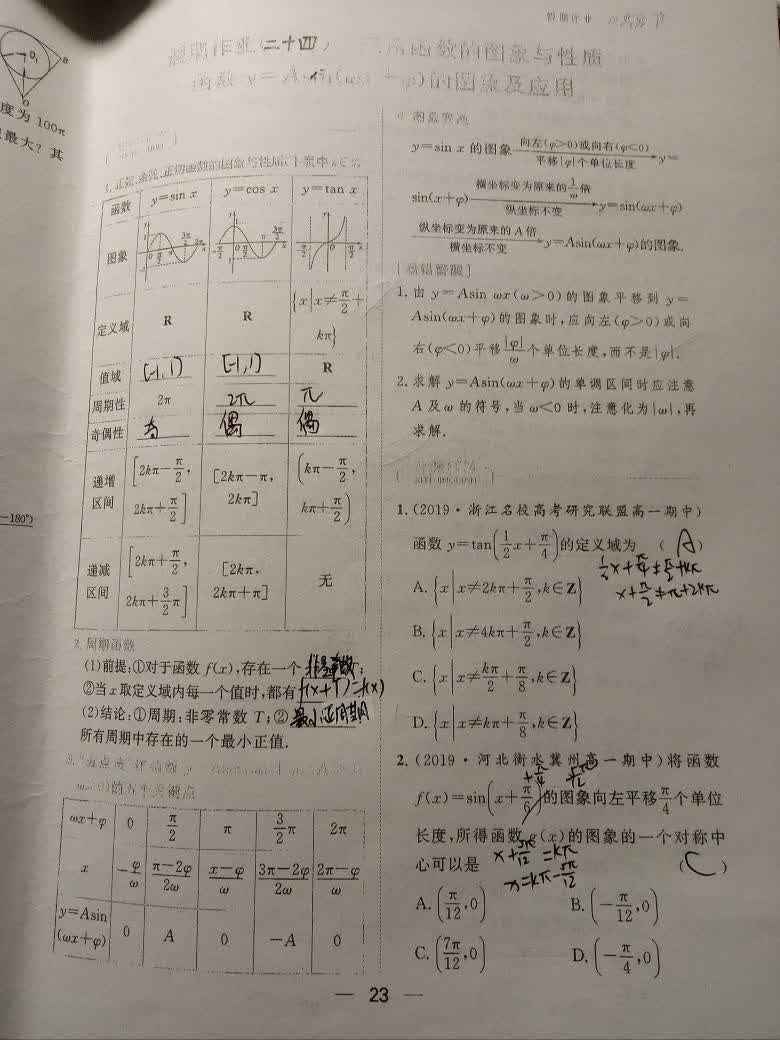 度为 100π
最大？其
-180°)
假期作业
假期作业(二十四) 三角函数的图象与性质
函数 y=Asin(ωx+φ)的图象及应用
1. 正弦、余弦、正切函数的图象与性质(下表中k∈Z)
函数 y=sin x y=cos x y=tan x
图象
定义域 R R {x|x≠π/2+kπ}
值域 [-1,1) [-1,1] R
周期性 2π 2π π
奇偶性 奇 偶 偶
递增区间 [2kπ-π/2, 2kπ+π/2] [2kπ-π, 2kπ] (kπ-π/2, kπ+π/2)
递减区间 [2kπ+π/2, 2kπ+3/2π] [2kπ, 2kπ+π] 无
2. 周期函数
(1)前提:①对于函数 f(x),存在一个 非零常数;
②当x取定义域内每一个值时,都有 f(x+T)=f(x)
(2)结论:①周期:非零常数 T;② 最小正周期
所有周期中存在的一个最小正值.
ωx+φ 0 π/2 π 3/2π 2π
x -φ/ω π-2φ/2ω π-φ/ω 3π-2φ/2ω 2π-φ/ω
y=Asin(ωx+φ) 0 A 0 -A 0
4. 图象变换
y=sin x 的图象 向左(φ>0)或向右(φ<0) 平移|φ|个单位长度 y=
sin(x+φ) 横坐标变为原来的1/ω倍 纵坐标不变 y=sin(ωx+φ)
纵坐标变为原来的 A 倍 横坐标不变 y=Asin(ωx+φ)的图象.
[易错警醒]
1. 由 y=Asin ωx(ω>0)的图象平移到 y=
Asin(ωx+φ)的图象时,应向左(φ>0)或向
右(φ<0)平移|φ|/ω个单位长度,而不是|φ|.
2. 求解 y=Asin(ωx+φ)的单调区间时应注意
A 及 ω 的符号,当 ω<0 时,注意化为|ω|,再
求解.
1. (2019·浙江名校高考研究联盟高一期中)
函数 y=tan(1/2x+π/4)的定义域为 (A)
1/2x+π/4≠π/2+kπ
x+π/2≠π+2kπ
A. {x|x≠2kπ+π/2,k∈Z}
B. {x|x≠4kπ+π/2,k∈Z}
C. {x|x≠kπ/2+π/8,k∈Z}
D. {x|x≠kπ+π/8,k∈Z}
2. (2019·河北衡水冀州高一期中)将函数
f(x)=sin(x+π/6)的图象向左平移π/4个单位
长度,所得函数 g(x)的图象的一个对称中
心可以是 (C)
x+5π/12=kπ
x=kπ-5π/12
A. (π/12,0) B. (-π/12,0)
C. (7π/12,0) D. (-π/4,0)
— 23 —